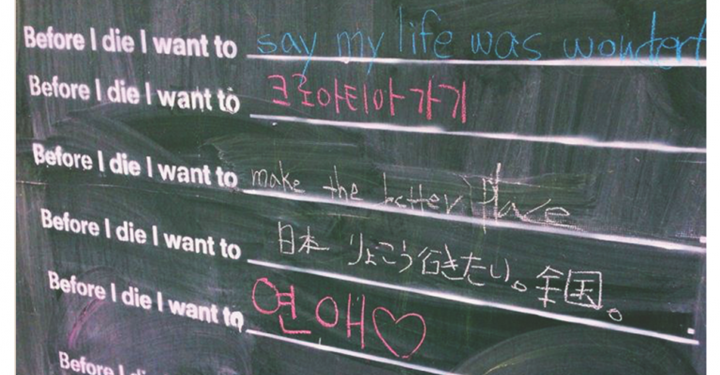 Before I die I want to say my life was wonderf
Before I die I want to 크로아티아 가기
Before I die I want to make the better place
Before I die I want to 日本 りょこう行きたい。全国。
Before I die I want to 연애♡
Before I di